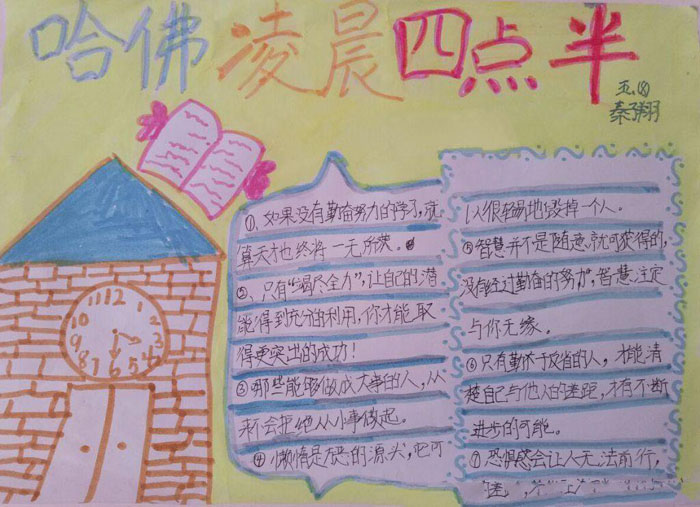 哈佛凌晨四点半
秦翔
11 12 1
10 2
9 3
8 7 6 5 4
①、如果没有勤奋努力的学习,就
算天才也终将一无所获。
②、只有“竭尽全力”,让自己的潜
能得到充分的利用,你才能取
得更突出的成功!
③那些能够做成大事的人,从
来不会拒绝从小事做起。
④、懒惰是万恶的源头,它可
以很轻易地毁掉一个人。
⑤智慧并不是随意就可获得的,
没有经过勤奋的努力,智慧注定
与你无缘。
⑥只有勤于反省的人,才能清
楚自己与他人的差距,才有不断
进步的可能。
⑦恐惧感会让人无法前行,